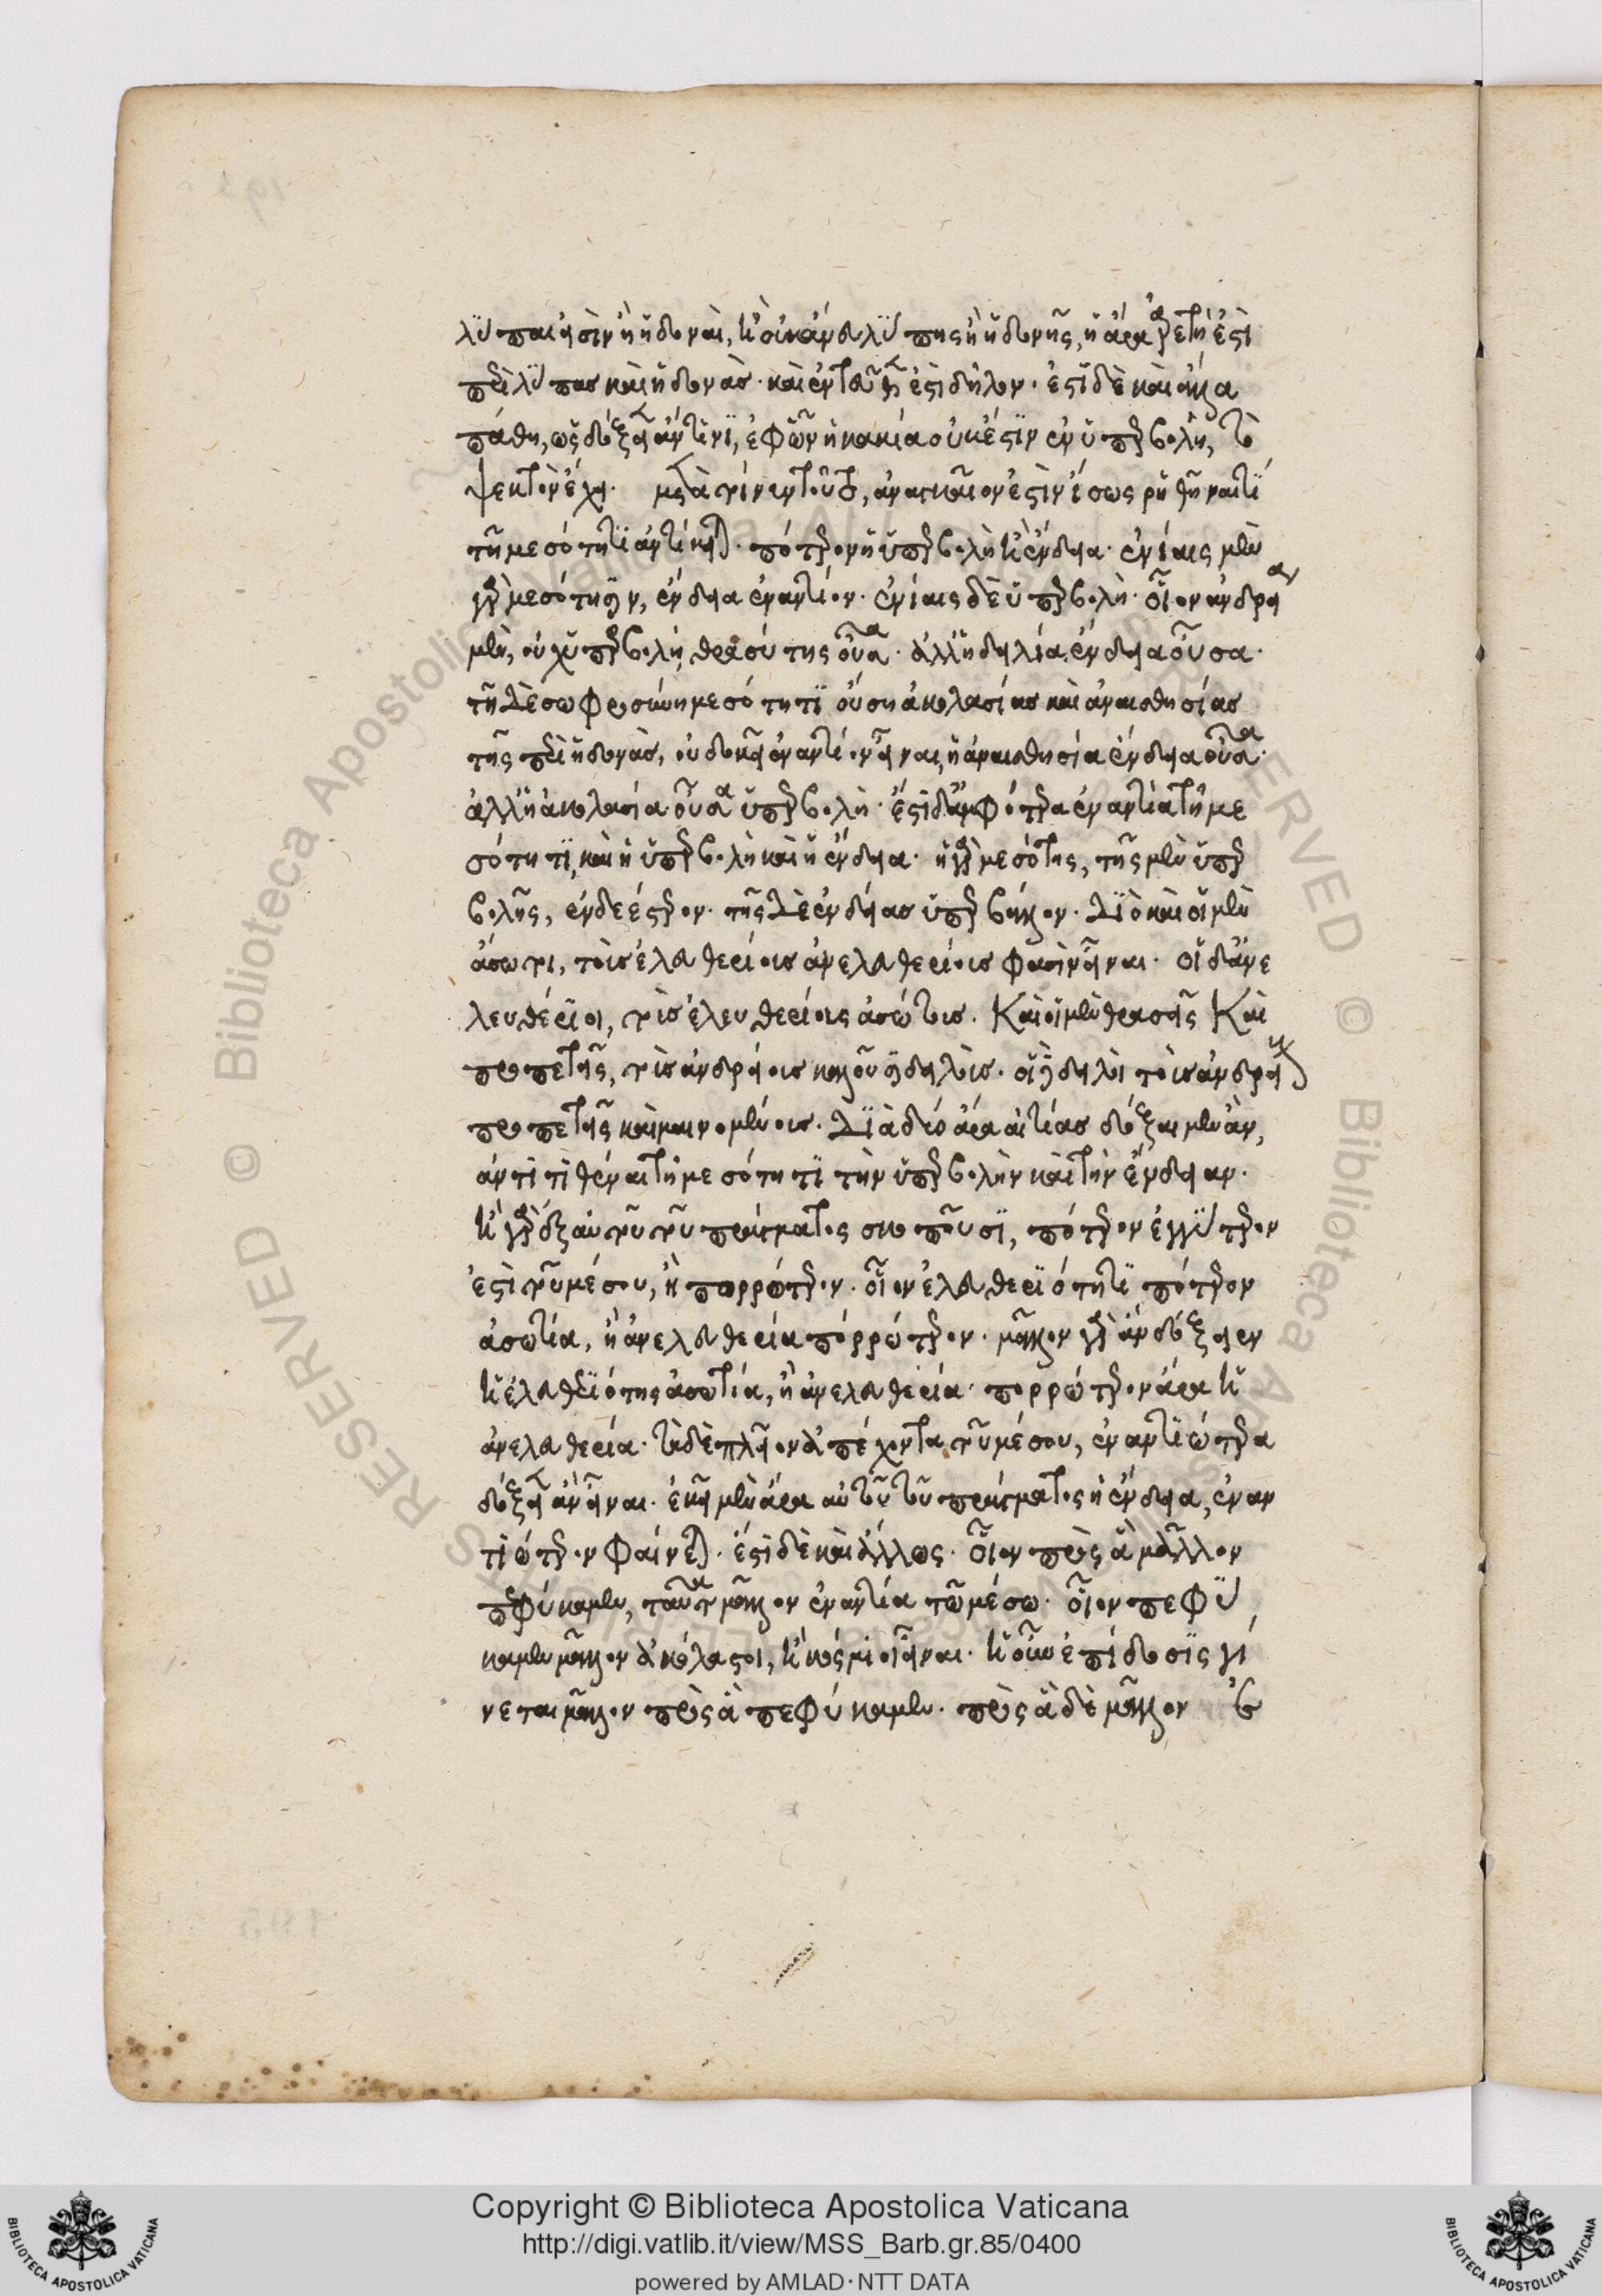 λῦπαι εἰσὶν ἢ ἡδοναὶ, ἢ οὐκ ἄνευ λύπης ἢ ἡδονῆς, ἡ ἄρα ἀρετὴ ἐστὶ
περὶ λύπας καὶ ἡδονάς. καὶ ἐντεῦθεν ἐστὶ δῆλον. ἔστι δὲ καὶ ἄλλα
πάθη, ὡς δόξειεν ἄν τινι, ἐφ' ὧν ἡ κακία οὐκ ἔστιν ἐν ὑπερβολῇ, τὸ
ψεκτὸν ἔχει. μετὰ τοίνυν τοῦτο, ἀναγκαῖον ἐστὶν ἴσως ῥηθῆναι τί
τῇ μεσότητι ἀντίκειται. πότερον ἡ ὑπερβολὴ ἢ ἔνδεια. ἐνίαις μὲν
γὰρ μεσότησιν, ἔνδεια ἐναντίον. ἐνίαις δὲ ὑπερβολή. οἷον ἀνδρεία
μὲν, οὐχ ὑπερβολὴ θρασύτης οὖσα. ἀλλ' ἡ δειλία ἔνδεια οὖσα.
τῇ δὲ σωφροσύνῃ μεσότητι οὔσῃ ἀκολασίας καὶ ἀναισθησίας
τῆς περὶ ἡδονὰς, οὐ δοκεῖ ἐναντίον εἶναι, ἡ ἀναισθησία ἔνδεια οὖσα.
ἀλλ' ἡ ἀκολασία οὖσα ὑπερβολή. ἔστι δ' ἀμφότερα ἐναντία τῇ με
σότητι, καὶ ἡ ὑπερβολὴ καὶ ἡ ἔνδεια. ἡ γὰρ μεσότης, τῆς μὲν ὑπερ
βολῆς, ἐνδεέστερον. τῆς δὲ ἐνδείας ὑπερβάλλον. διὸ καὶ οἱ μὲν
ἄσωτοι, τοὺς ἐλευθερίους ἀνελευθερίους φασὶν εἶναι. οἱ δ' ἀνε
λευθέριοι, τοὺς ἐλευθερίους ἀσώτους. Καὶ οἱ μὲν θρασεῖς Καὶ
προπετεῖς, τοὺς ἀνδρείους καλοῦσι δειλούς. οἱ δὲ δειλοὶ τοὺς ἀνδρείους
προπετεῖς καὶ μαινομένους. Διὰ δύο ἄρα αἰτίας δόξαιμεν ἂν,
ἀντιτιθέναι τῇ μεσότητι τὴν ὑπερβολὴν καὶ τὴν ἔνδειαν.
ἢ γὰρ ἐξ αὐτοῦ τοῦ πράγματος σκοποῦσι, πότερον ἐγγύτερον
ἐστὶ τοῦ μέσου, ἢ πορρώτερον. οἷον ἐλευθεριότητι πότερον
ἀσωτία, ἢ ἀνελευθερία πορρώτερον. μᾶλλον γὰρ ἂν δόξειεν
ἡ ἐλευθεριότης ἀσωτία, ἢ ἀνελευθερία. πορρώτερον ἄρα ἡ
ἀνελευθερία. τὰ δὲ πλεῖον ἀπέχοντα τοῦ μέσου, ἐναντιώτερα
δόξειεν ἂν εἶναι. ἐκ μὲν ἄρα αὐτοῦ τοῦ πράγματος ἡ ἔνδεια, ἐναν
τιώτερον φαίνεται. ἔστι δὲ καὶ ἄλλως. οἷον πρὸς ἃ μᾶλλον
πεφύκαμεν, ταῦτα μᾶλλον ἐναντία τῷ μέσῳ. οἷον πεφύ
καμεν μᾶλλον ἀκόλαστοι, ἢ κόσμιοι εἶναι. ἡ οὖν ἐπίδοσις γί
νεται μᾶλλον πρὸς ἃ πεφύκαμεν. πρὸς ἃ δὲ μᾶλλον ἐ